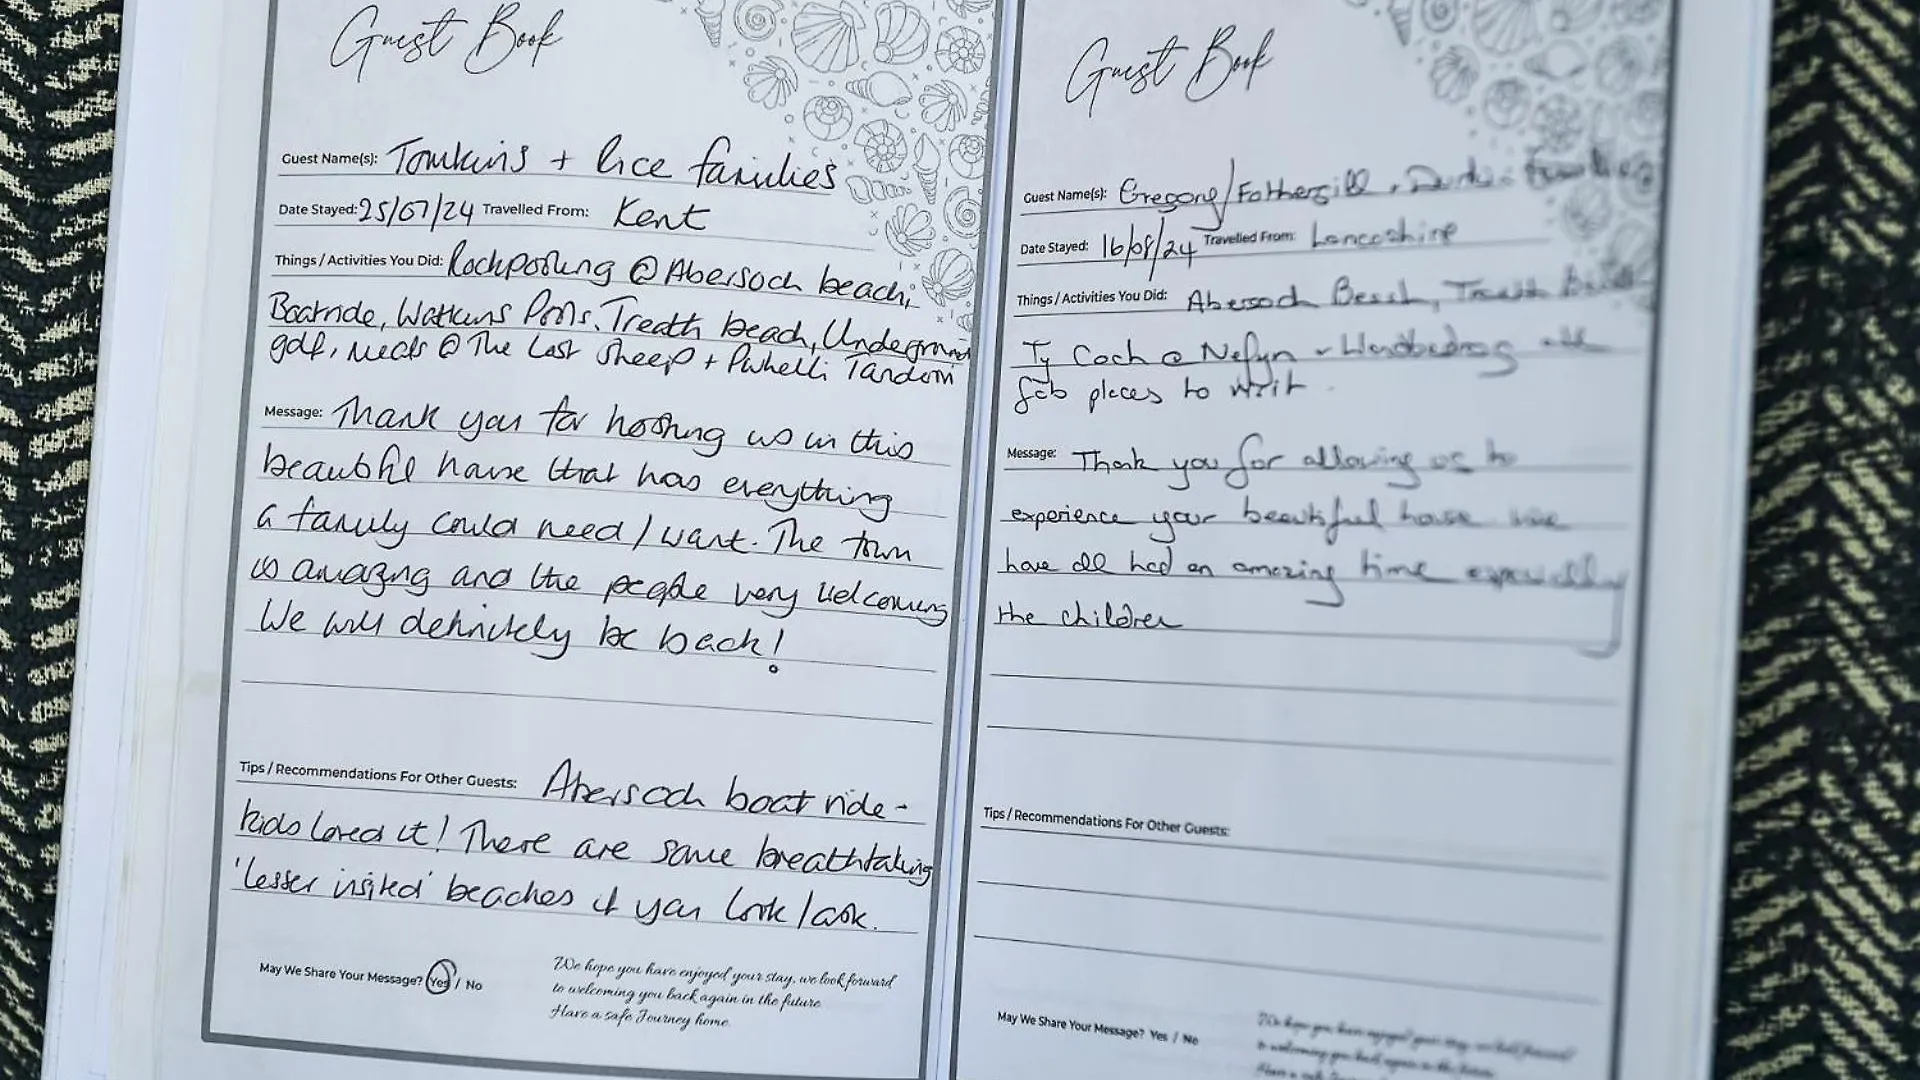 Guest Book
Guest Name(s): Tomkins + Rice families
Date Stayed: 25/07/24 Travelled From: Kent
Things / Activities You Did: Rockpooling @ Abersoch beach,
Boatride, Watkins Pools, Treath beach, Underground
golf, meals @ The Lost Sheep + Pwhelli Tandoori
Message: Thank you for hosting us in this
beautiful house that has everything
a family could need / want. The town
is amazing and the people very welcoming
We will definitely be back!
Tips / Recommendations For Other Guests: Abersoch boat ride -
kids loved it! There are some breathtaking
'lesser visited' beaches if you look / ask.
May We Share Your Message? Yes / No
We hope you have enjoyed your stay, we look forward
to welcoming you back again in the future
Have a safe Journey home.
Guest Book
Guest Name(s): Gregory / Fothergill
Date Stayed: 16/08/24 Travelled From: Lancashire
Things / Activities You Did: Abersoch Beach,
Ty Coch @ Nefyn + Llandbedrog all
fab places to visit.
Message: Thank you for allowing us to
experience your beautiful house we
have all had an amazing time especially
the children
Tips / Recommendations For Other Guests:
May We Share Your Message? Yes / No
We hope you have enjoyed your stay, we look forward
to welcoming you back again in the future